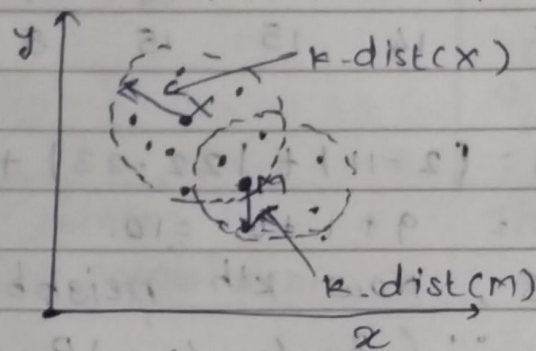 y
k-dist(X)
X
M
k-dist(M)
x